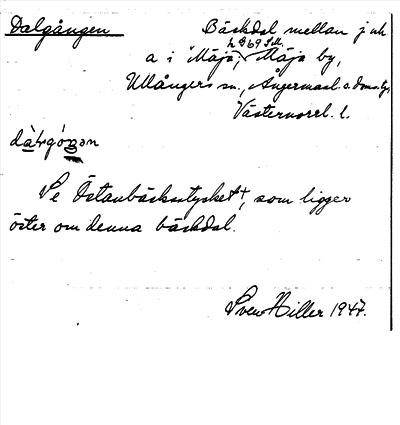 Dalgången Bäckdal mellan j och
a i Mäja, Mäja by,
Ullångers sn., Ångermanl. s. doms.,
Västernorrl. l.
Se Östanbäcksstycket, som ligger
öster om denna bäckdal.
Sven Hiller 1947.